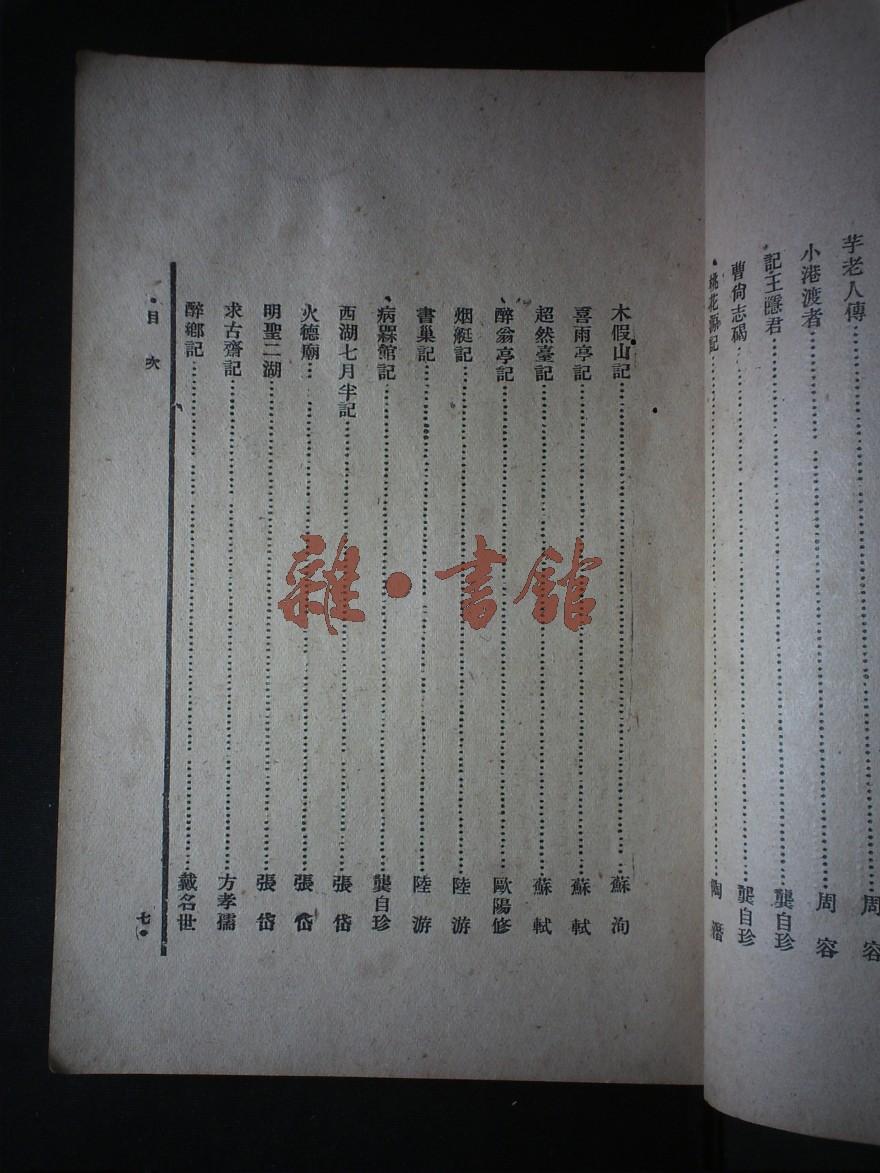 芋老人傳……周容
小港渡者……周容
記王隱君……龔自珍
曹尙志碣……龔自珍
桃花源記……陶潛
木假山記……蘇洵
喜雨亭記……蘇軾
超然臺記……蘇軾
醉翁亭記……歐陽修
烟艇記……陸游
書巢記……陸游
病槑館記……龔自珍
西湖七月半記……張岱
火德廟……張岱
明聖二湖……張岱
求古齋記……方孝孺
醉鄉記……戴名世
目次
七
雜·書館